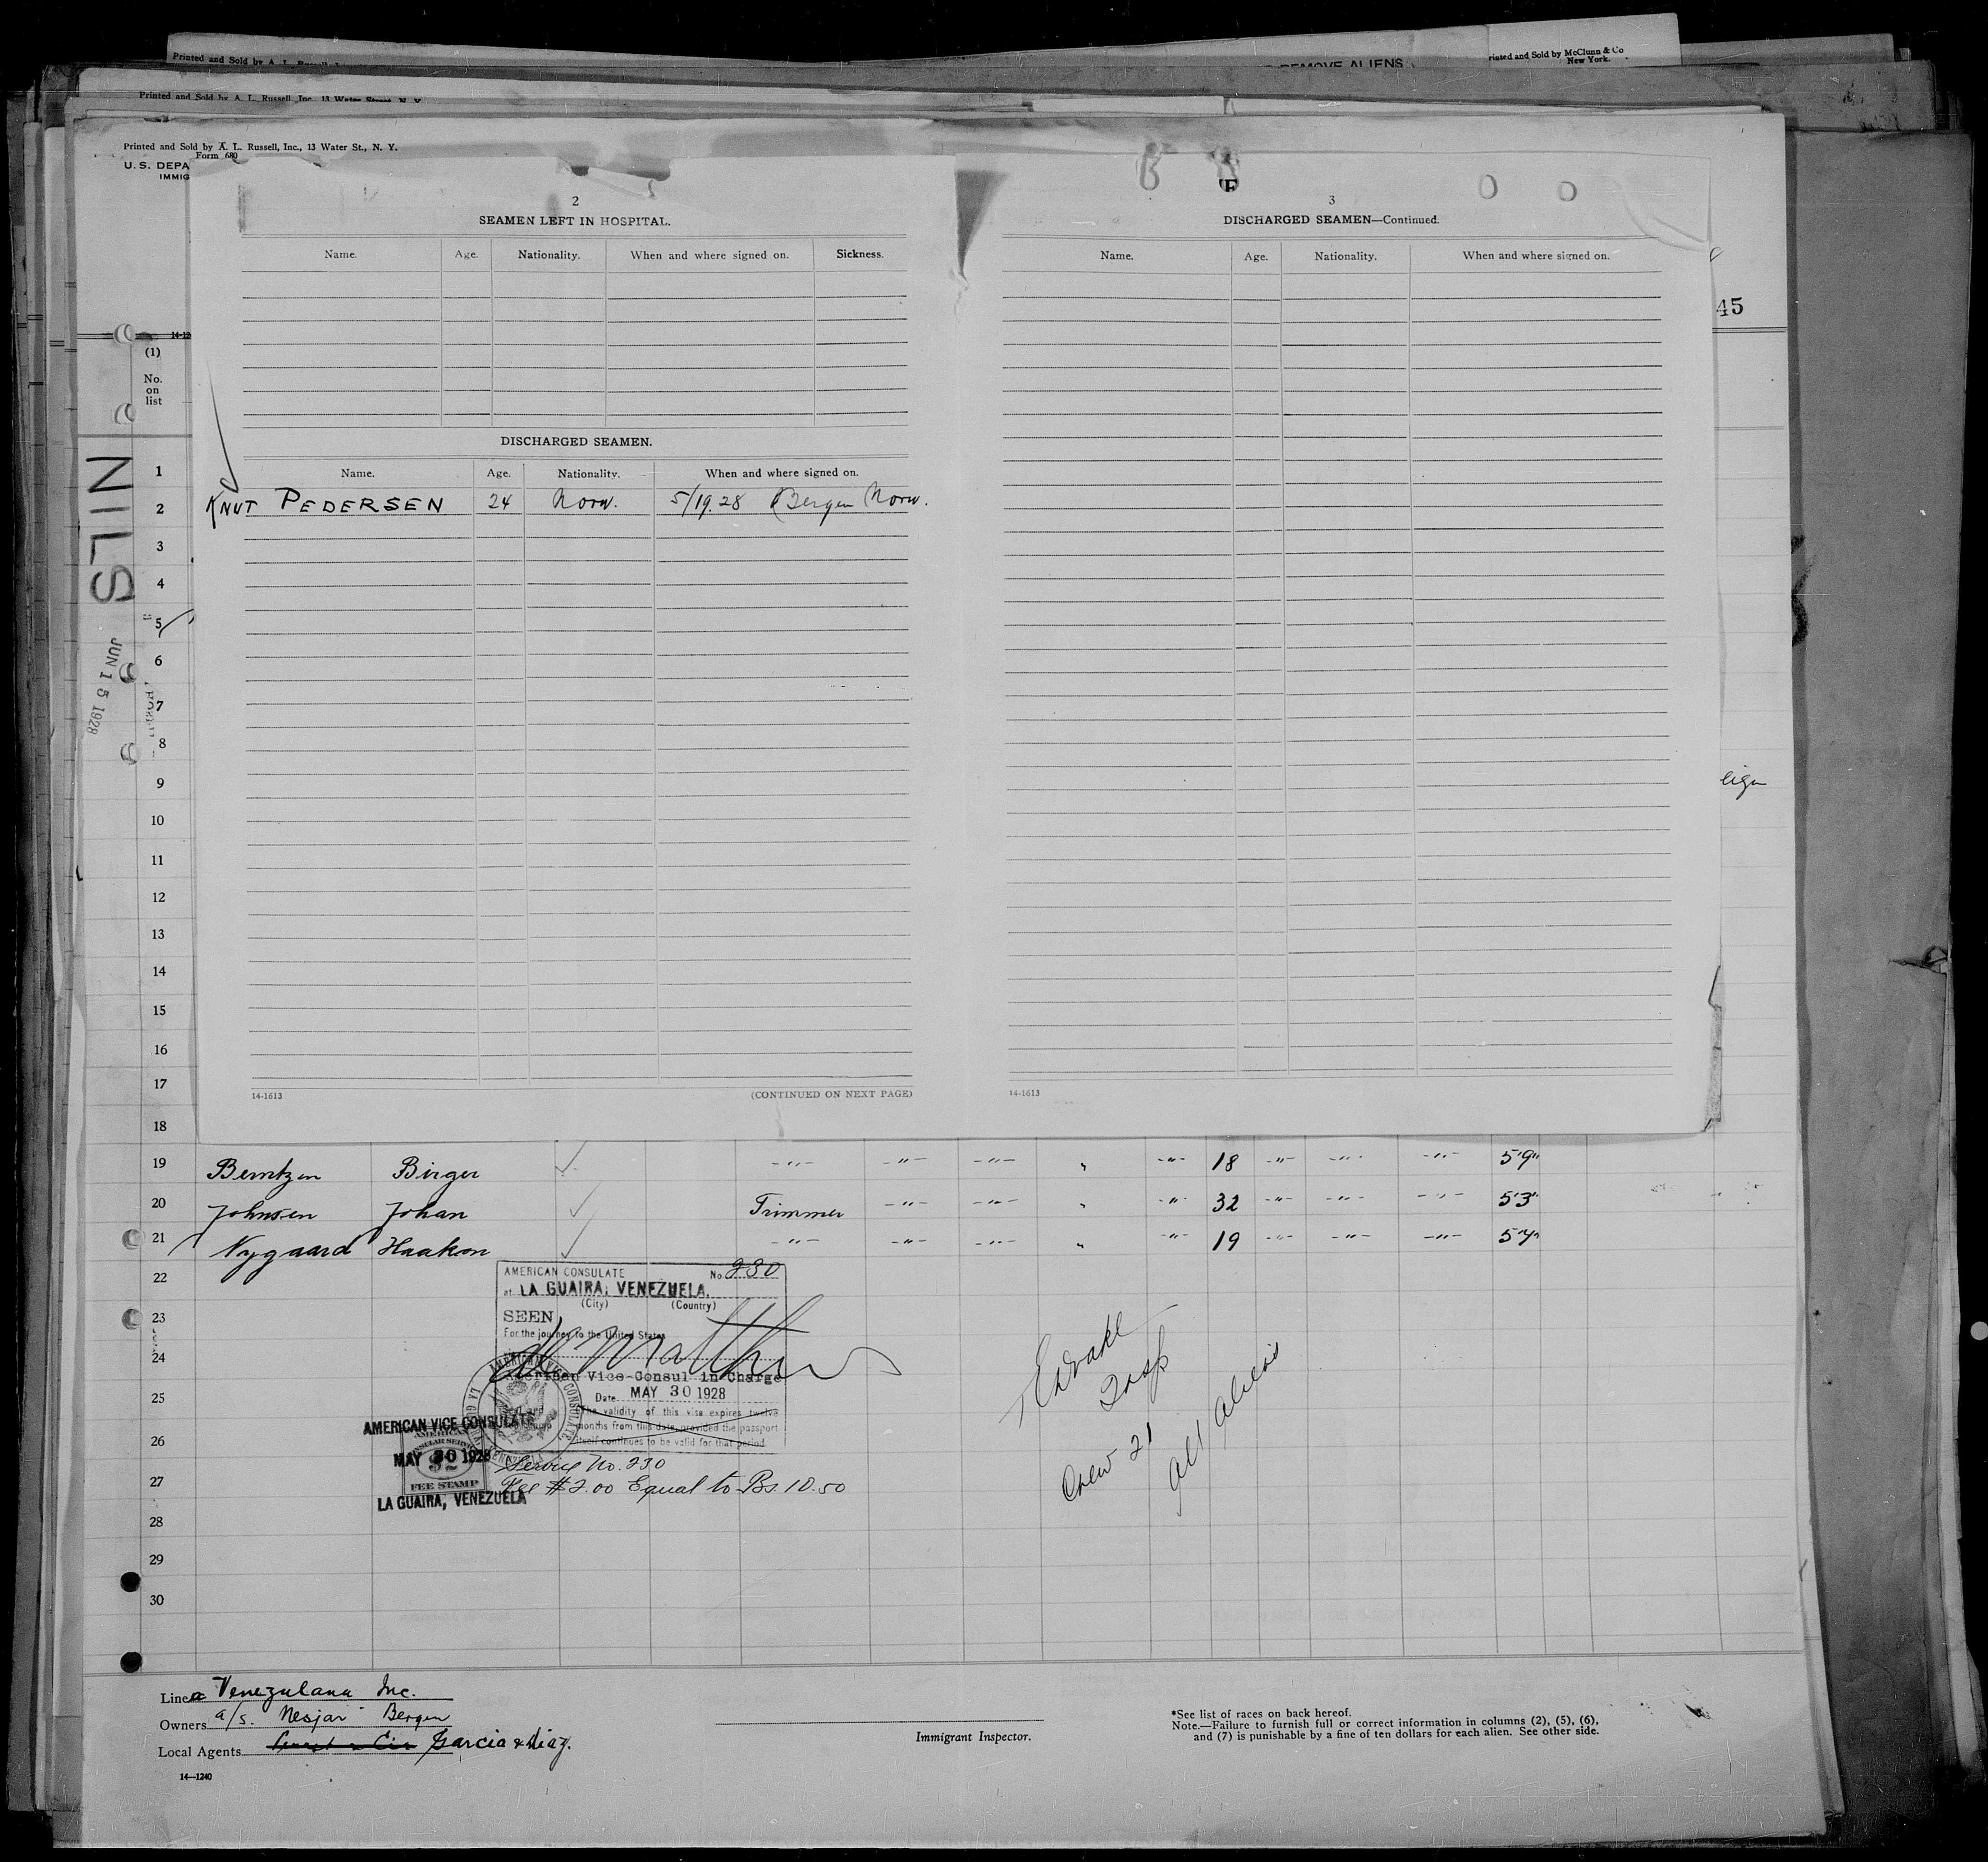 Printed and Sold by A. L. Russell
REMOVE ALIENS
Printed and Sold by McClunn & Co
New York.
Printed and Sold by A. L. Russell, Inc., 13 Water Street, N. Y.
Printed and Sold by A. L. Russell, Inc., 13 Water St., N. Y.
Form 680
U. S. DEPA
IMMIG
2
SEAMEN LEFT IN HOSPITAL.
Name. Age. Nationality. When and where signed on. Sickness.
DISCHARGED SEAMEN.
Name. Age. Nationality. When and where signed on.
KNUT PEDERSEN 24 Norw. 5/19.28 Bergen Norw.
14-1613 (CONTINUED ON NEXT PAGE)
3
DISCHARGED SEAMEN—Continued.
Name. Age. Nationality. When and where signed on.
14-1613
45
eign
14-12
(1)
No.
on
list
NILS
JUN 15 1928
1
2
3
4
5
6
7
8
9
10
11
12
13
14
15
16
17
18
19 Berntzen Birger ✓ -"- -"- -"- " -"- 18 -"- -"- -"- 5'9"
20 Johnsen Johan ✓ Trimmer -"- -"- " -"- 32 -"- -"- -"- 5'3"
21 Nygaard Haakon ✓ -"- -"- -"- " -"- 19 -"- -"- -"- 5'7"
22
23
24
25
26
27
28
29
30
AMERICAN CONSULATE No. 230
at LA GUAIRA, VENEZUELA.
(City) (Country)
SEEN
For the journey to the United States
American Vice-Consul in Charge
Date MAY 30 1928
The validity of this visa expires twelve
months from this date, provided the passport
itself continues to be valid for that period.
AMERICAN VICE CONSULATE
MAY 30 1928
FEE STAMP
LA GUAIRA, VENEZUELA
Service No. 230
Fee $2.00 Equal to Bs. 10.50
Insp
Crew 21
all aliens
Linea Venezulana Inc.
Owners a/s. Nesjar Bergen
Local Agents Garcia & Diaz.
14—1240
Immigrant Inspector.
*See list of races on back hereof.
Note.—Failure to furnish full or correct information in columns (2), (5), (6),
and (7) is punishable by a fine of ten dollars for each alien. See other side.